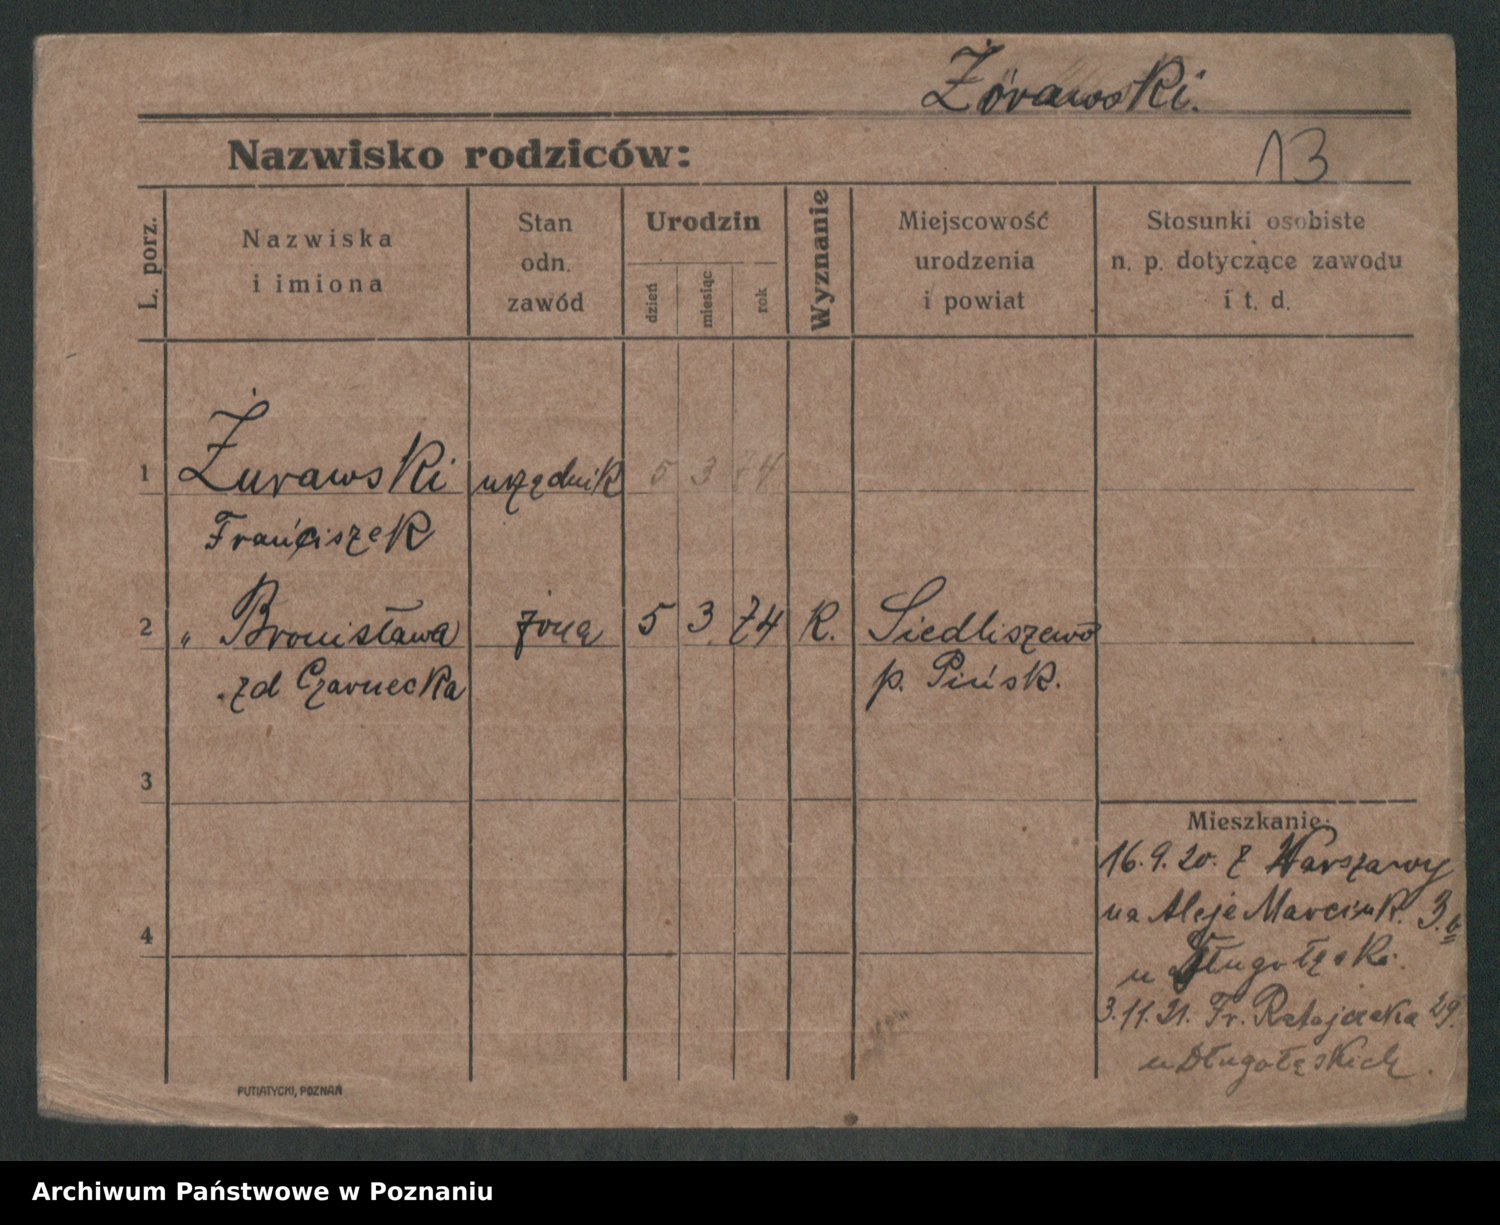 Żórawski.
Nazwisko rodziców:
13
L. porz.
Nazwiska
i imiona
Stan
odn.
zawód
Urodzin
dzień
miesiąc
rok
Wyznanie
Miejscowość
urodzenia
i powiat
Stosunki osobiste
n. p. dotyczące zawodu
i t. d.
1 Żurawski urzędnik 5 3 74
Franciszek
2 „ Bronisława żona 5 3 74 K. Siedliszewo
zd Czarnecka p. Pińsk.
3
Mieszkanie:
16.9.20. z Warszawy
na Aleje Marcink. 3.b
4
u Długołęski.
3.11.21. Fr. Ratajczaka 29.
u Długołęskich.
PUTIATYCKI, POZNAŃ
Archiwum Państwowe w Poznaniu